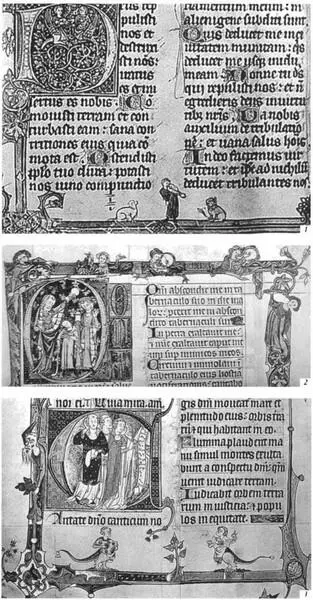 pulisti
nos et
isti nos:
iratus
es et mi
sertus es nobis. Co
mouisti terram et con
turbasti eam: sana con
tritiones eius quia co
mota est. Ostendisti
pplo tuo dura: potasti
nos uino conpunctio
alienigene subditi sunt.
Quis deducet me in ci
uitatem munitam:
deducet me usq; in
meam. Nonne tu ds
qui repulisti nos: et n
egredieris deus in uirtu
tibz nris. Da nobis
auxilium de tribulatio
ne: et uana salus hois
In deo faciemus uir
tutem: et ipse ad nichilu
deducet tribulantes nos.
1
Qm abscondit me in ta
bernaculo suo in die ma
lor: protexit me in abscon
dito tabernaculi sui
In petra exaltauit me:
nunc exaltauit caput me
um sup inimicos meos
Circuiui immolaui i
tabernaculo eius hostia
uociferationis: cantabo
2
Antate dno canticum no
gis dni moueat mare et
plenitudo eius: orbis tra
ru: qui habitant in eo
Flumina plaudent ma
nu simul montes exulta
bunt a conspectu dni: qm
uenit iudicare terram.
Iudicabit orbem terra
rum in iusticia: et popu
los in equitate.